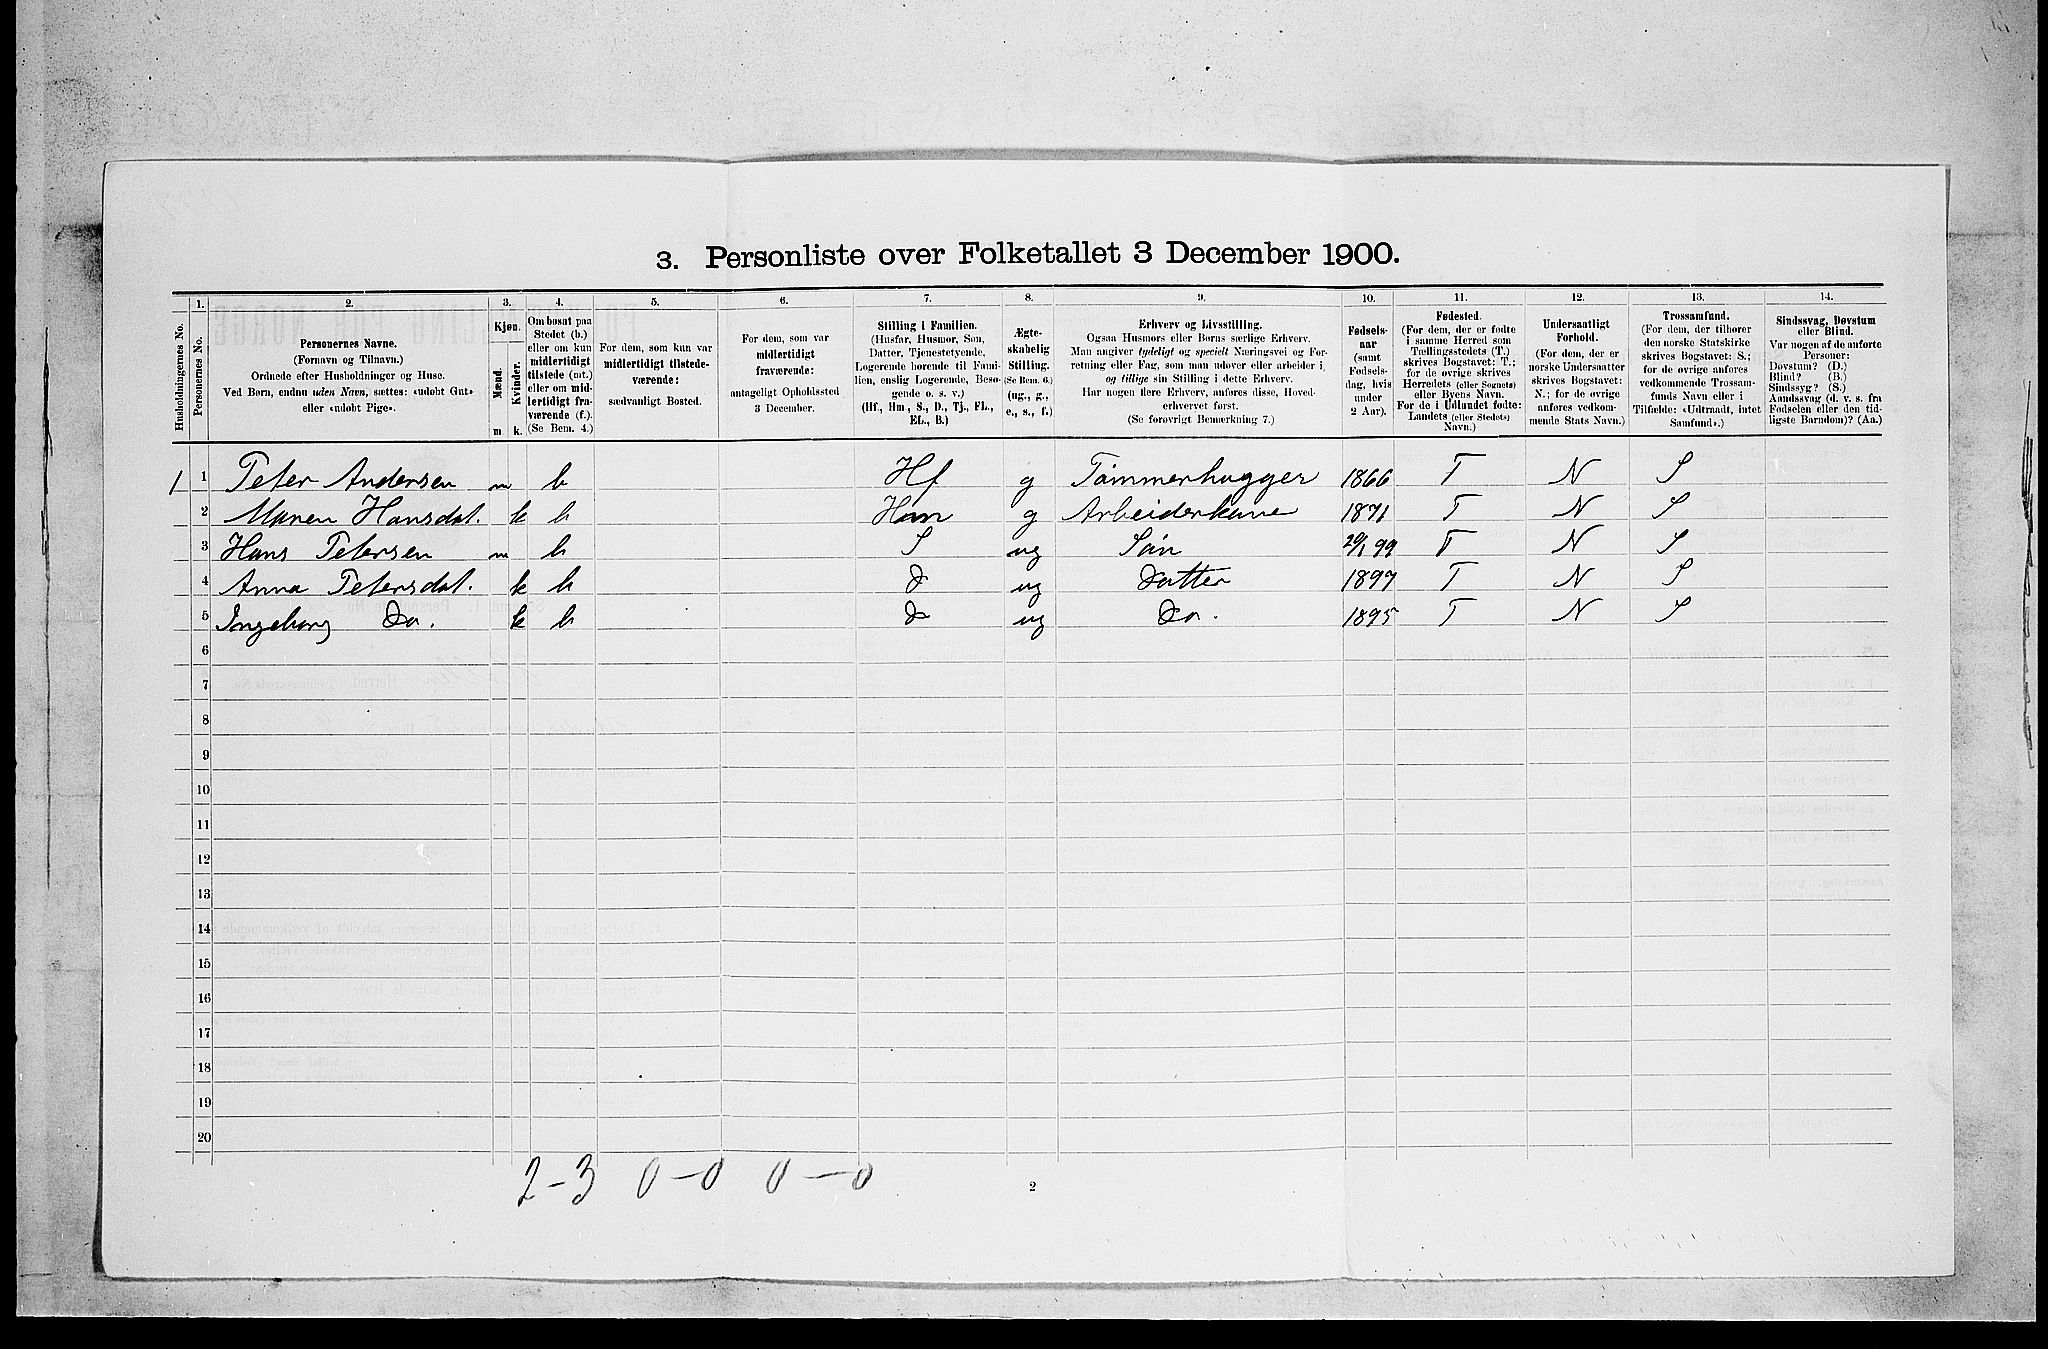 3. Personliste over Folketallet 3 December 1900.
1. 2. 3. 4. 5. 6. 7. 8. 9. 10. 11. 12. 13. 14.
Husholdningernes No.
Personernes No.
Personernes Navne.
(Fornavn og Tilnavn.)
Ordnede efter Husholdninger og Huse.
Ved Børn, endnu uden Navn, sættes: «udøbt Gut»
eller «udøbt Pige».
Kjøn.
Mænd.
Kvinder.
m k.
Om bosat paa
Stedet (b.)
eller om kun
midlertidigt
tilstede (mt.)
eller om mid-
lertidigt fra-
værende (f.).
(Se Bem. 4.)
For dem, som kun var
midlertidigt tilstede-
værende:
sædvanligt Bosted.
For dem, som var
midlertidigt
fraværende:
antageligt Opholdssted
3 December.
Stilling i Familien.
(Husfar, Husmor, Søn,
Datter, Tjenestetyende,
Logerende hørende til Fami-
lien, enslig Logerende, Besø-
gende o. s. v.)
(Hf., Hm., S., D., Tj., FL.,
EL., B.)
Ægte-
skabelig
Stilling.
(Se Bem. 6.)
(ug., g.,
e., s., f.)
Erhverv og Livsstilling.
Ogsaa Husmors eller Børns særlige Erhverv.
Man angiver tydeligt og specielt Næringsvei og For-
retning eller Fag, som man udøver eller arbeider i,
og tillige sin Stilling i dette Erhverv.
Har nogen flere Erhverv, anføres disse, Hoved-
erhvervet først.
(Se forøvrigt Bemærkning 7.)
Fødsels-
aar
(samt
Fødsels-
dag, hvis
under
2 Aar).
Fødested.
(For dem, der er fødte
i samme Herred som
Tællingsstedets (T.)
skrives Bogstavet: T.;
for de øvrige skrives
Herredets (eller Sognets)
eller Byens Navn.
For de i Udlandet fødte:
Landets (eller Stedets)
Navn.)
Undersaatligt
Forhold.
(For dem, der er
norske Undersaatter
skrives Bogstavet:
N.; for de øvrige
anføres vedkom-
mende Stats Navn.)
Trossamfund.
(For dem, der tilhører
den norske Statskirke
skrives Bogstavet: S.;
for de øvrige anføres
vedkommende Trossam-
funds Navn eller i
Tilfælde: «Udtraadt, intet
Samfund».)
Sindssvag, Døvstum
eller Blind.
Var nogen af de anførte
Personer:
Døvstum? (D.)
Blind? (B.)
Sindssyg? (S.)
Aandssvag (d. v. s. fra
Fødselen eller den tid-
ligste Barndom)? (Aa.)
1 1 Peter Andersen m b Hf g Tømmerhugger 1866 T N S
2 Maren Hansdat. k b Hm g Arbeiderkone 1871 T N S
3 Hans Petersen m b S ug Søn 29/1 99 T N S
4 Anna Petersdat. k b d ug datter 1897 T N S
5 Ingeborg do. k b d ug do. 1895 T N S
6
7
8
9
10
11
12
13
14
15
16
17
18
19
20
2-3 0-0 0-0
2